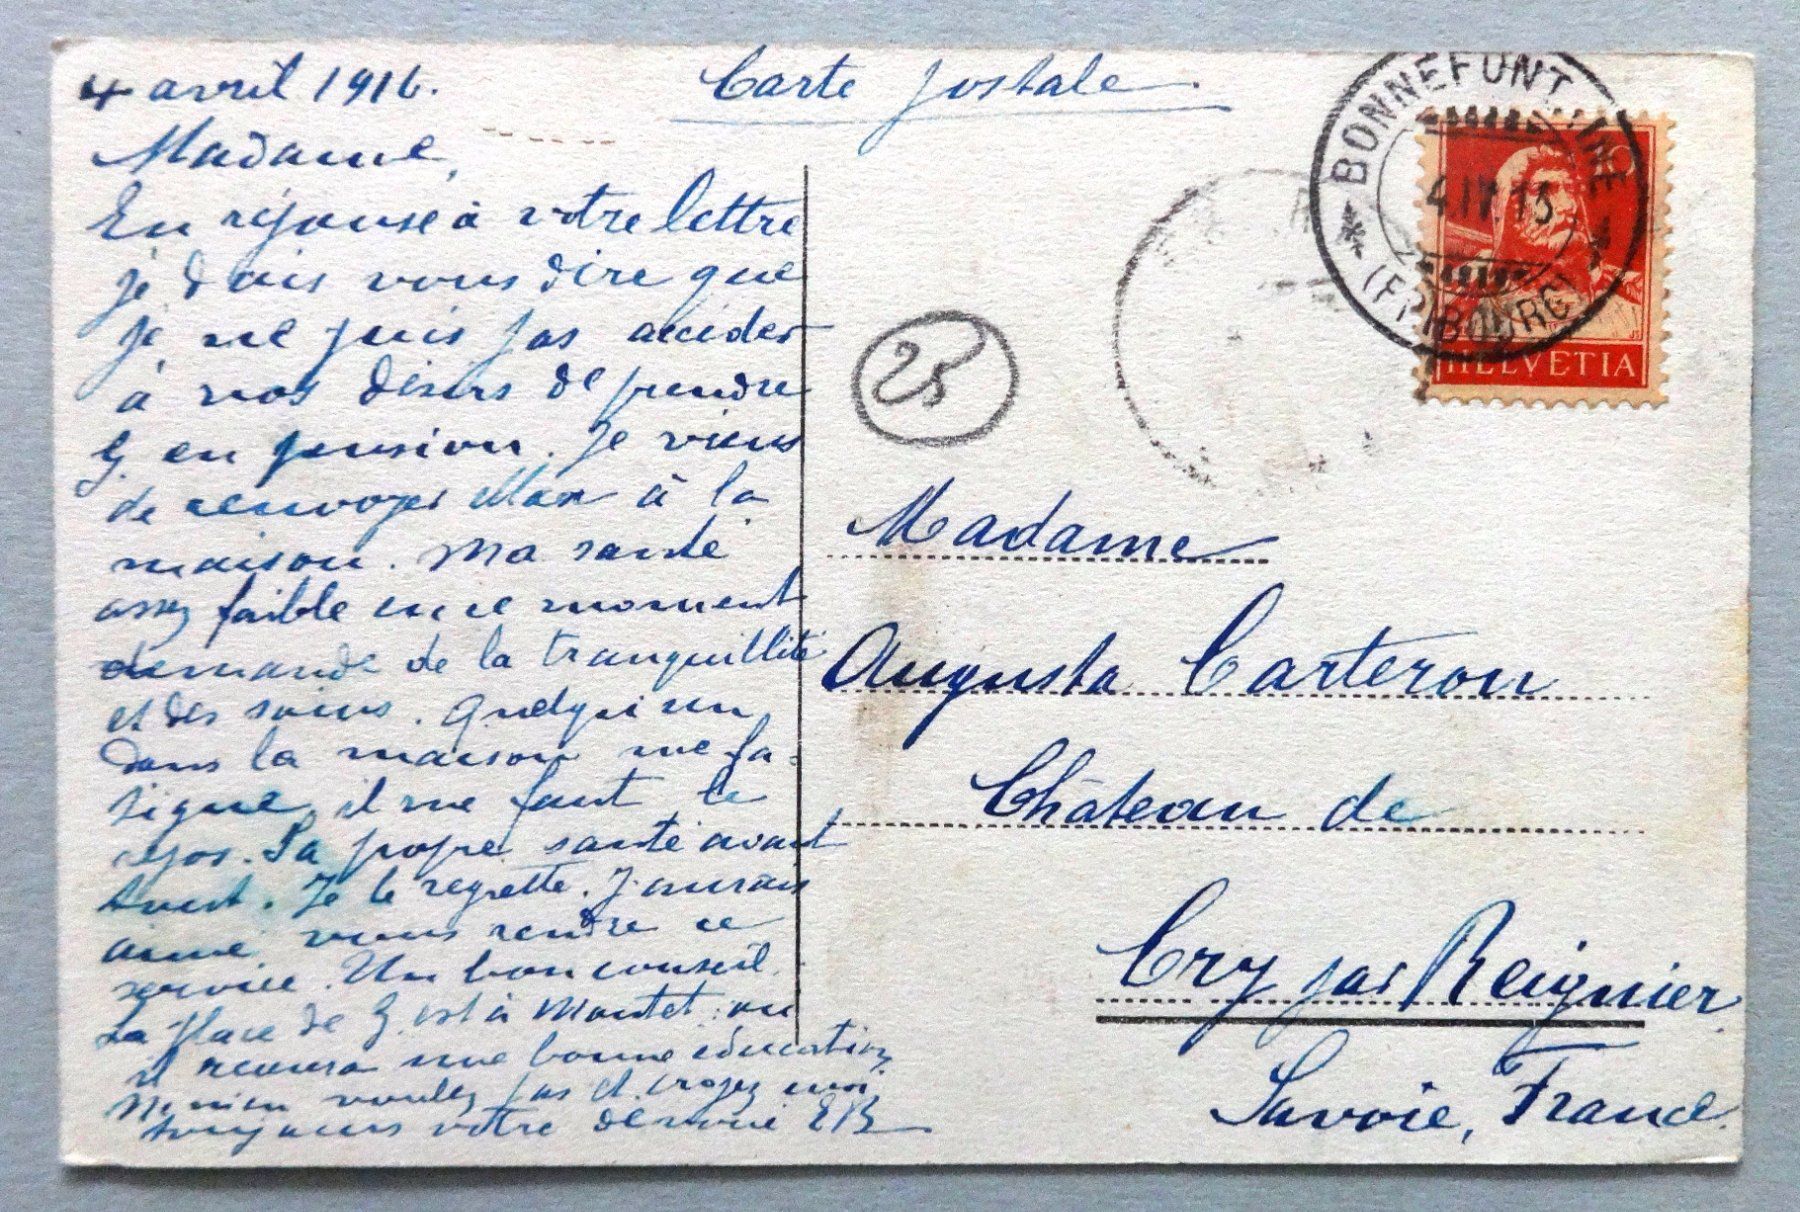 4 avril 1916.
Carte postale.
Madame,
En réponse à votre lettre
je dois vous dire que
je ne puis pas accéder
à vos désirs de prendre
G. en pension. Je viens
de renvoyer Max à la
maison. Ma santé
assez faible en ce moment
demande de la tranquillité
et des soins. Quelqu'un
dans la maison me fa-
tigue, il me faut le
repos. Sa propre santé avant
tout. Je le regrette. J'aurais
aimé vous rendre ce
service. Un bon conseil.
La place de G. est à Montet: ou
il recevra une bonne éducation.
M'en voulez pas et croyez moi
toujours votre dévoué EB
25
BONNEFONTAINE
4.IV.
(FRIBOURG)
HELVETIA
Madame
Augusta Carteron
Château de
Cry par Reignier
Savoie, France.